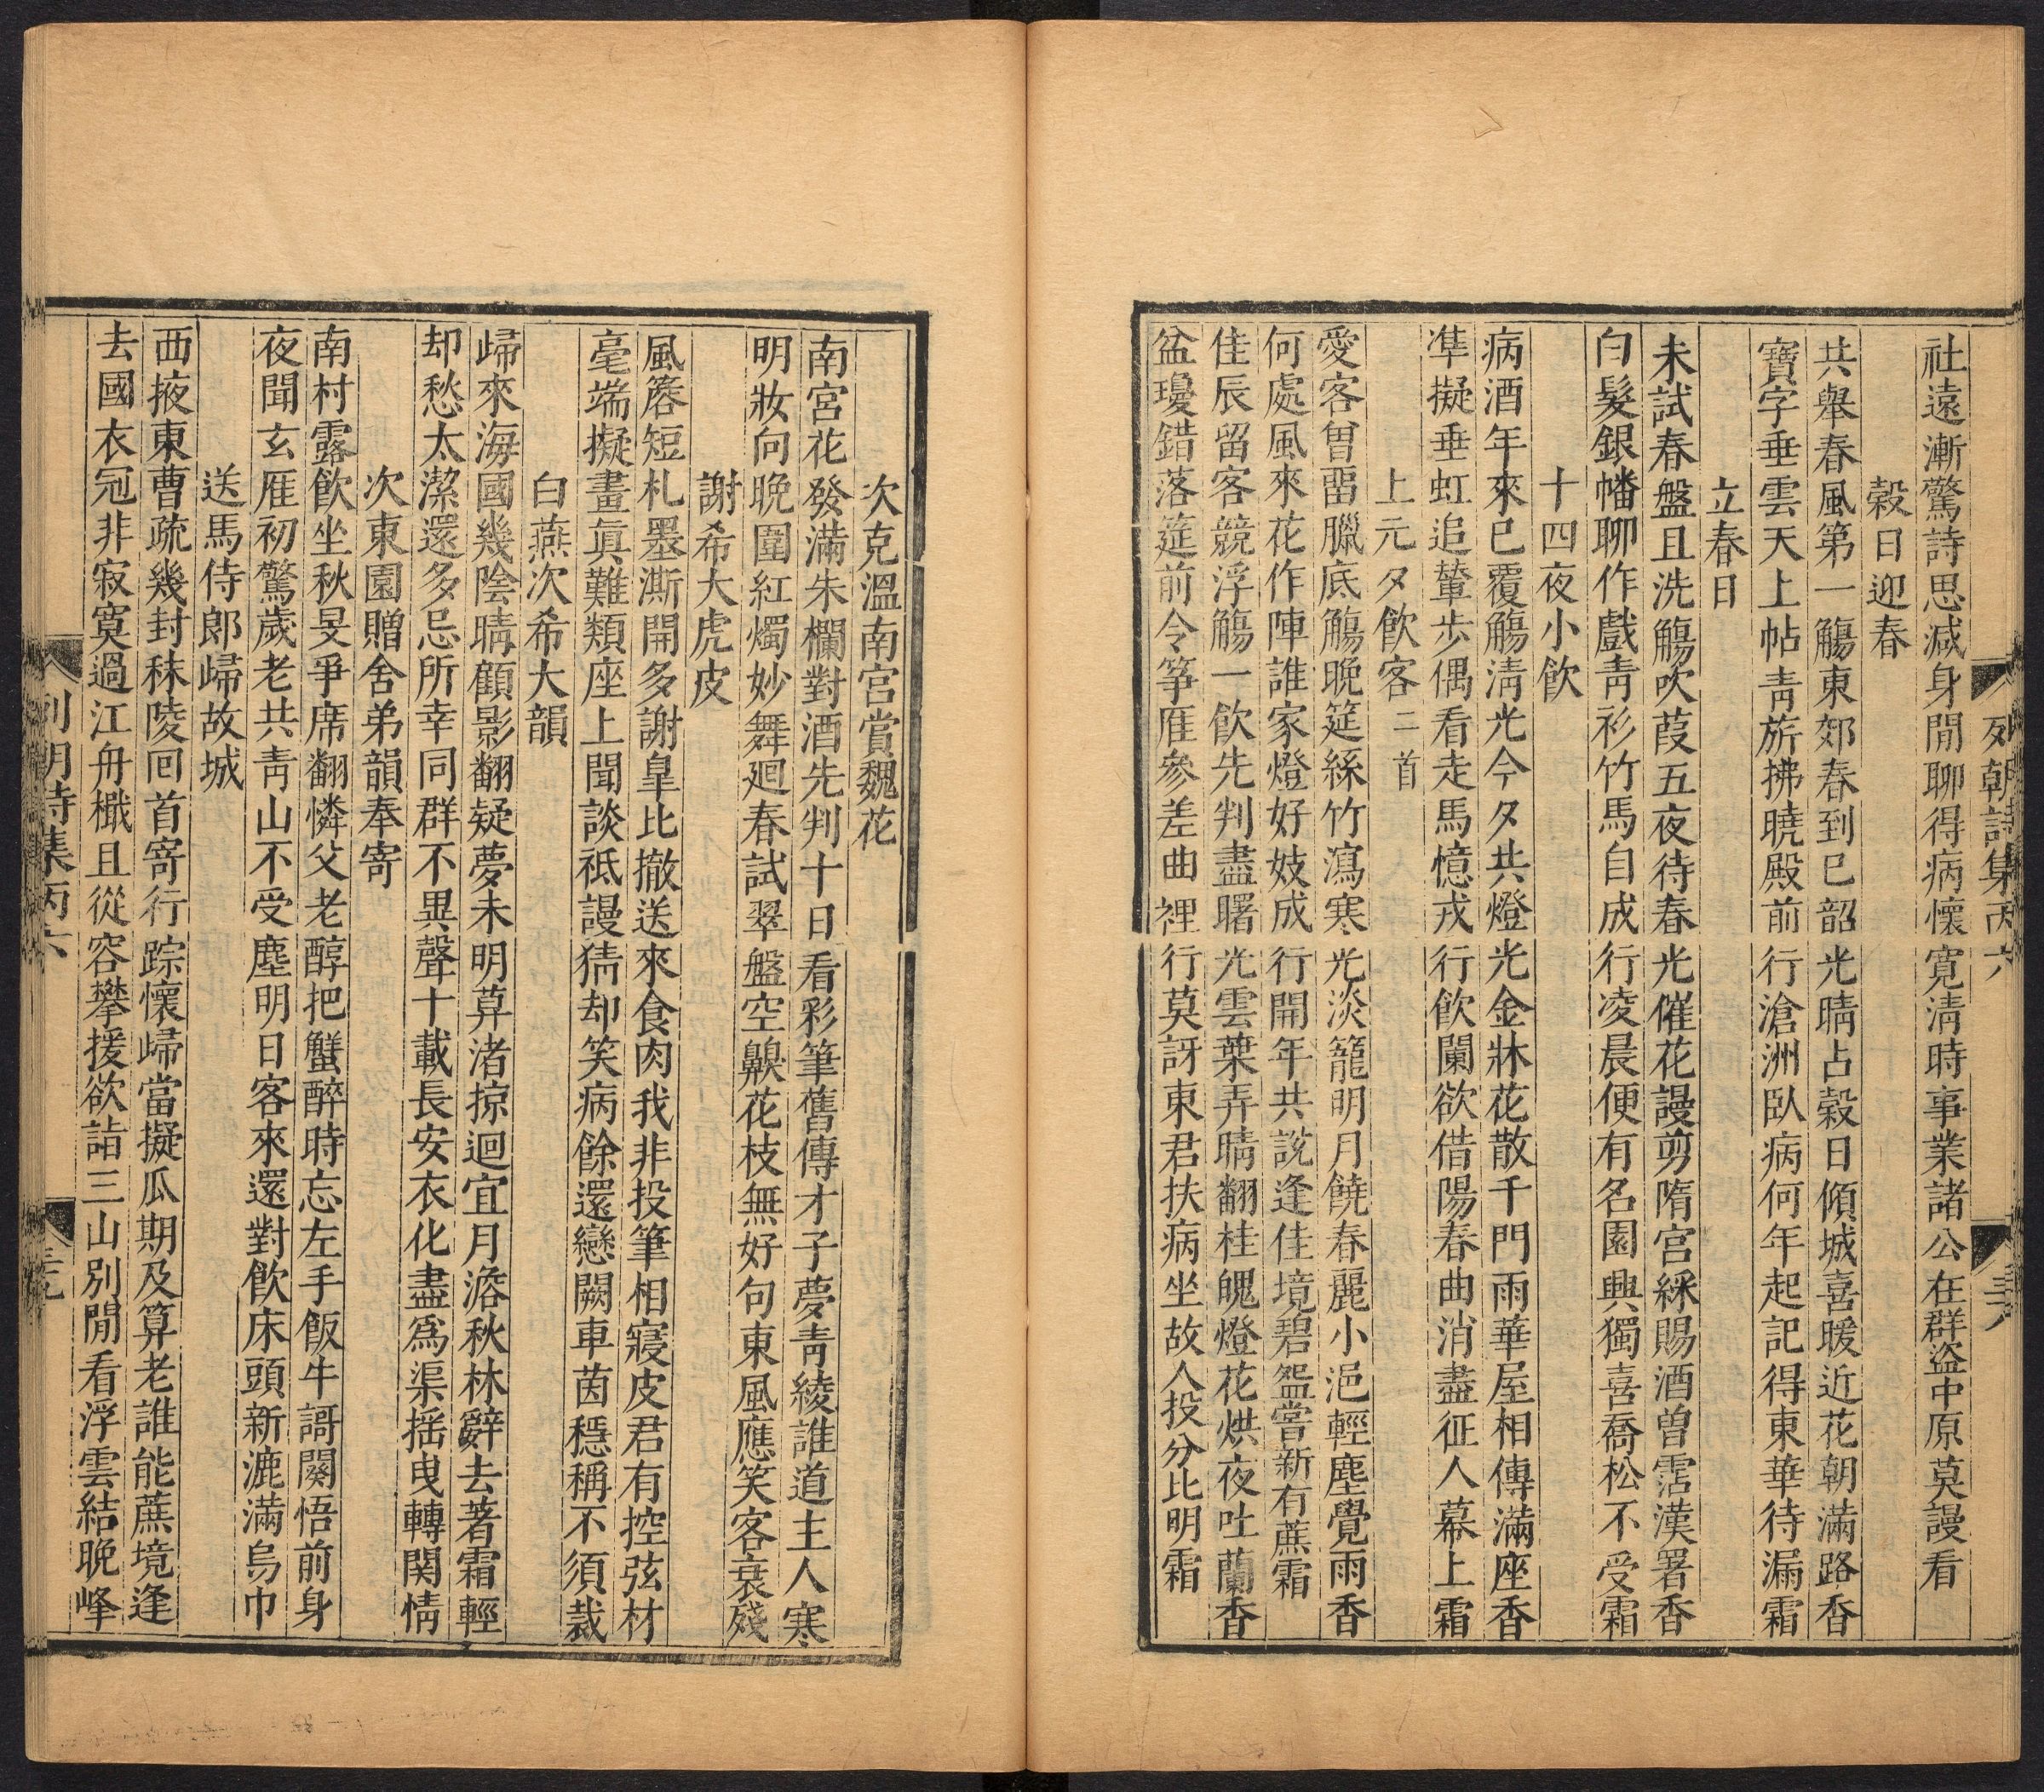 列朝詩集丙六
三六
社遠漸驚詩思減身閒聊得病懷寬淸時事業諸公在群盜中原莫謾看
穀日迎春
共舉春風第一觴東郊春到巳韶光晴占穀日傾城喜暖近花朝滿路香
寶字垂雲天上帖靑旂拂曉殿前行滄洲臥病何年起記得東華待漏霜
立春日
未試春盤且洗觴吹葭五夜待春光催花謾剪隋宮綵賜酒曾霑漢署香
白髮銀幡聊作戲靑衫竹馬自成行凌晨便有名園興獨喜喬松不受霜
十四夜小飲
病酒年來巳覆觴淸光今夕共燈光金牀花散千門雨華屋相傳滿座香
準擬垂虹追輦步偶看走馬憶戎行飲闌欲借陽春曲消盡征人幕上霜
上元夕飲客二首
愛客曾畱臘底觴晚筵絲竹瀉寒光淡籠明月饒春麗小浥輕塵覺雨香
何處風來花作陣誰家燈好妓成行開年共說逢佳境碧盌嘗新有蔗霜
佳辰留客競浮觴一飲先判盡曙光雲葉弄晴翻桂魄燈花烘夜吐蘭香
盆瓊錯落筵前令箏雁參差曲裡行莫訝東君扶病坐故人投分比明霜
次克溫南宮賞魏花
南宮花發滿朱欄對酒先判十日看彩筆舊傳才子夢靑綾誰道主人寒
明妝向晚圍紅燭妙舞廻春試翠盤空齅花枝無好句東風應笑客衰殘
謝希大虎皮
風簷短札墨澌開多謝皐比撤送來食肉我非投筆相寢皮君有控弦材
毫端擬畫眞難類座上聞談祗謾猜却笑病餘還戀闕車茵穩稱不須裁
白燕次希大韻
歸來海國幾陰晴顧影翻疑夢未明草渚掠迴宜月澹秋林辭去著霜輕
却愁太潔還多忌所幸同群不異聲十載長安衣化盡爲渠搖曳轉関情
次東園贈舍弟韻奉寄
南村露飲坐秋旻爭席翻憐父老醇把蟹醉時忘左手飯牛謌闋悟前身
夜聞玄雁初驚歲老共靑山不受塵明日客來還對飲床頭新漉滿烏巾
送馬侍郞歸故城
西掖東曹疏幾封秣陵回首寄行踪懷歸當擬瓜期及算老誰能蔗境逢
去國衣冠非寂寞過江舟檝且從容攀援欲詣三山別閒看浮雲結晚峰
列朝詩集丙六
三九